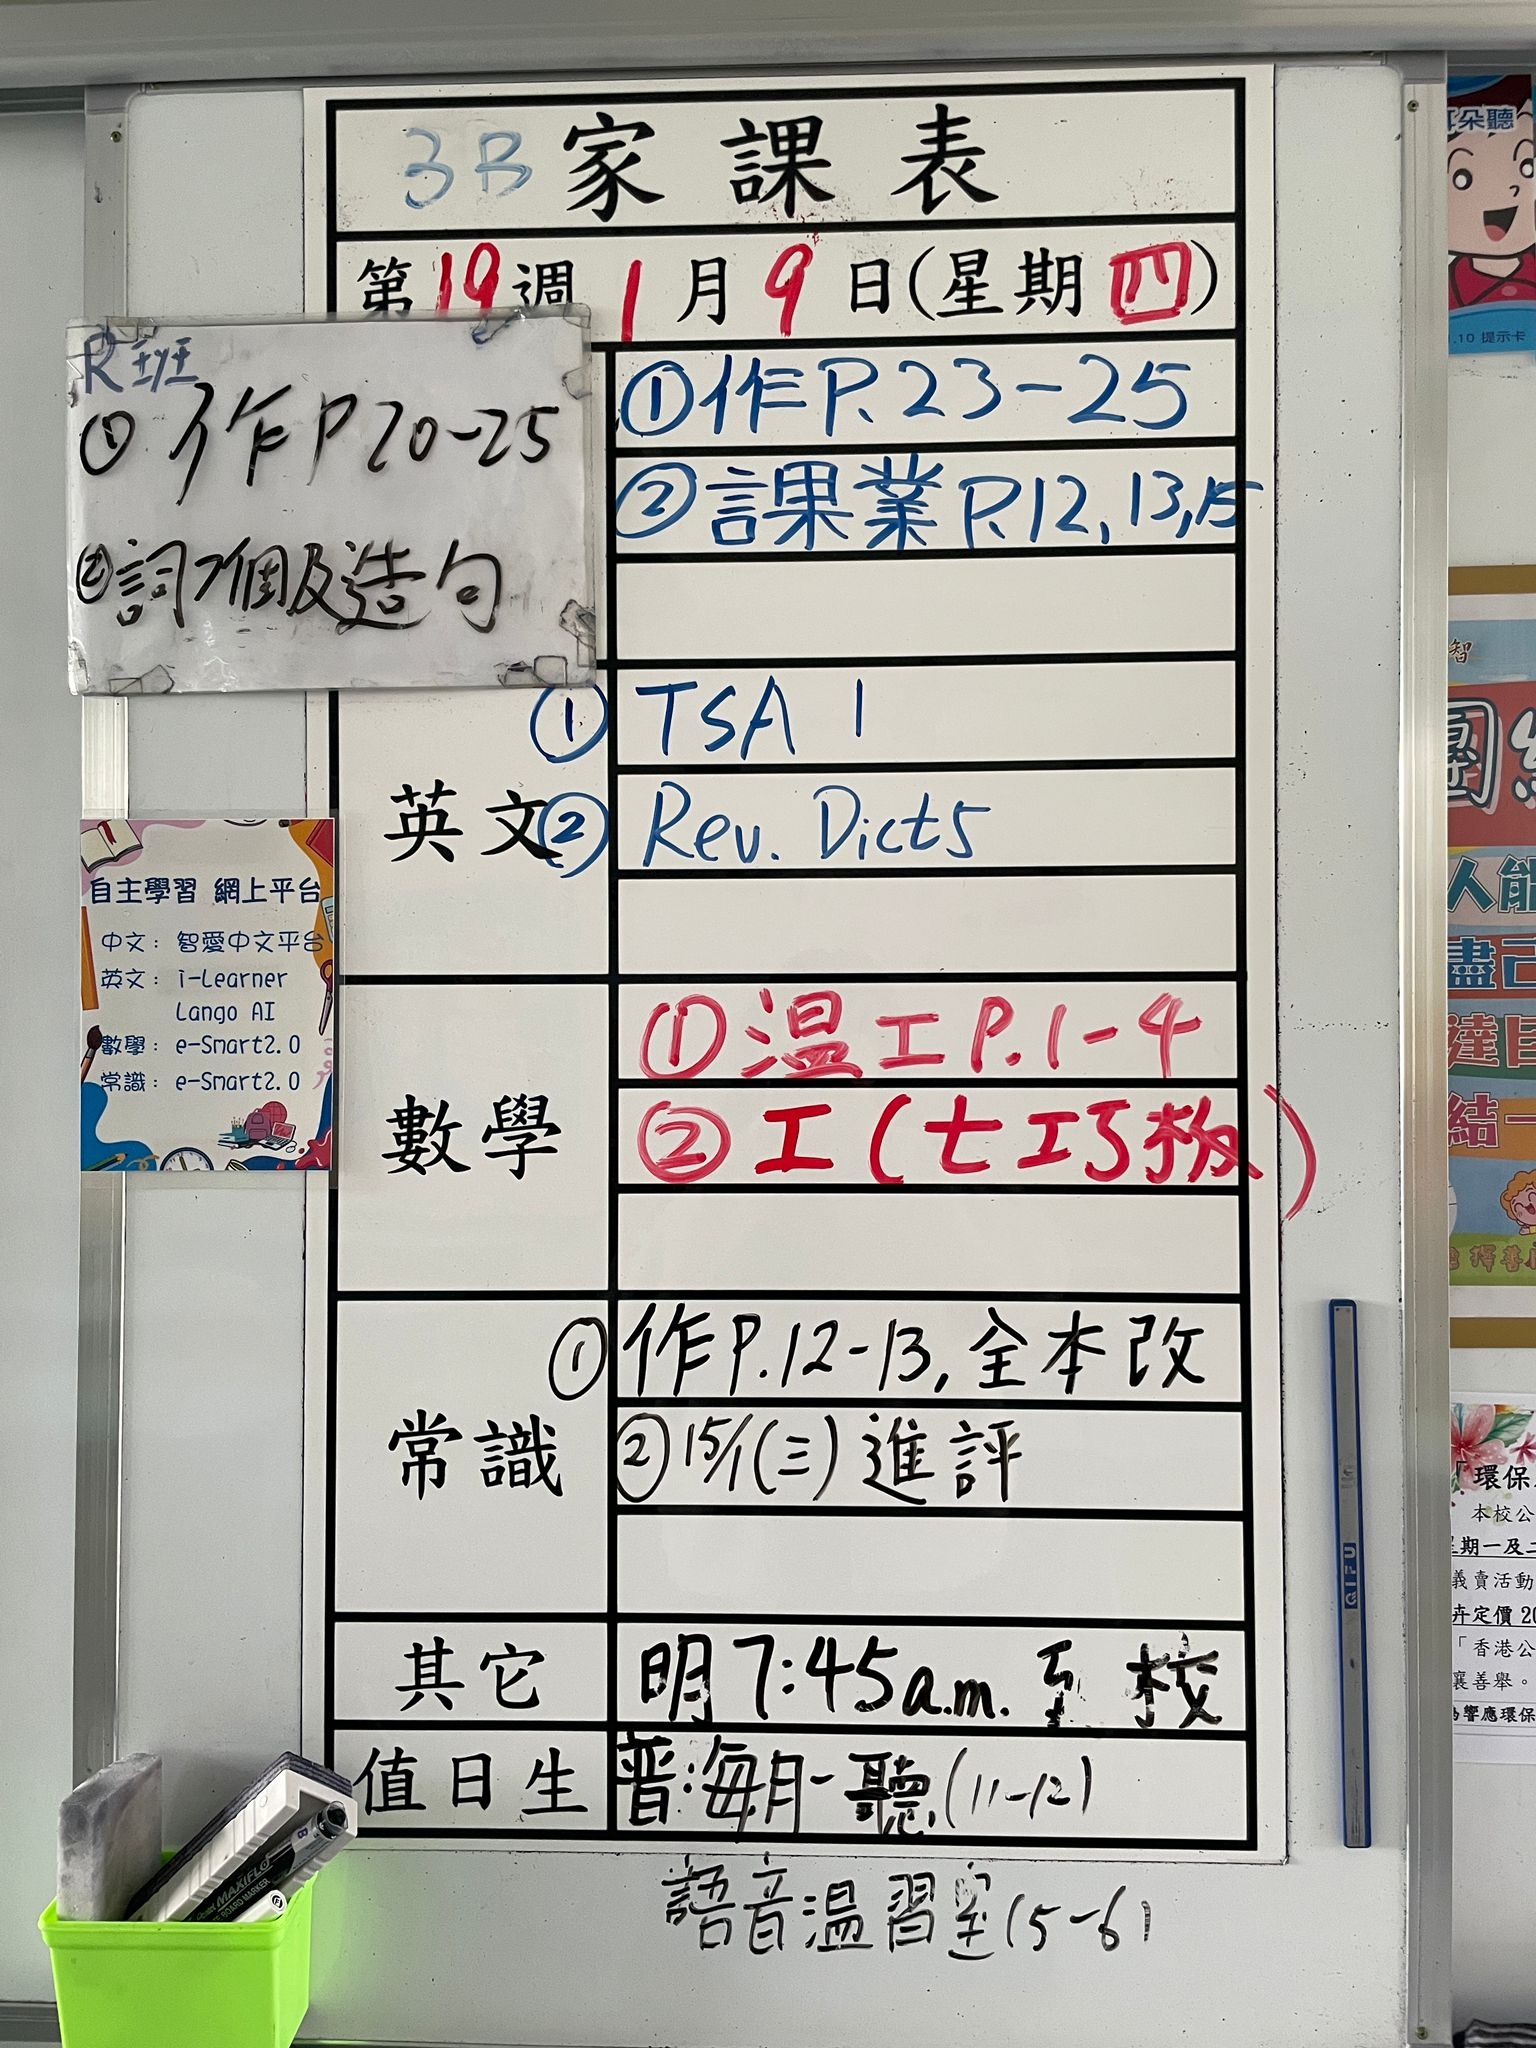 3B 家課表
第19週 1月9日(星期四)
R班
① 作P20-25
② 詞7個及造句
①作P.23-25
②課業P.12,13,15
英文
① TSA 1
② Rev. Dict5
數學
①溫工P.1-4
②工(七工巧板)
常識
①作P.12-13,全本改
②15/1(三)進評
其它
明7:45a.m.至校
值日生
普:每月一聽(11-12)
語音溫習室(5-6)
自主學習 網上平台
中文: 智愛中文平台
英文: i-Learner
Lango AI
數學: e-Smart2.0
常識: e-Smart2.0
MAXIFLO
QIFU
耳朵聽
.10 提示卡
智
團結
人能
盡己
達目
結一
「環保
本校公
星期一及二
義賣活動
卉定價 20
「香港公
襄善舉。
為響應環保